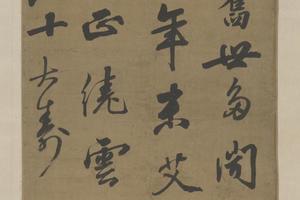 舊世多閒
年未艾
正繞雲
十大壽